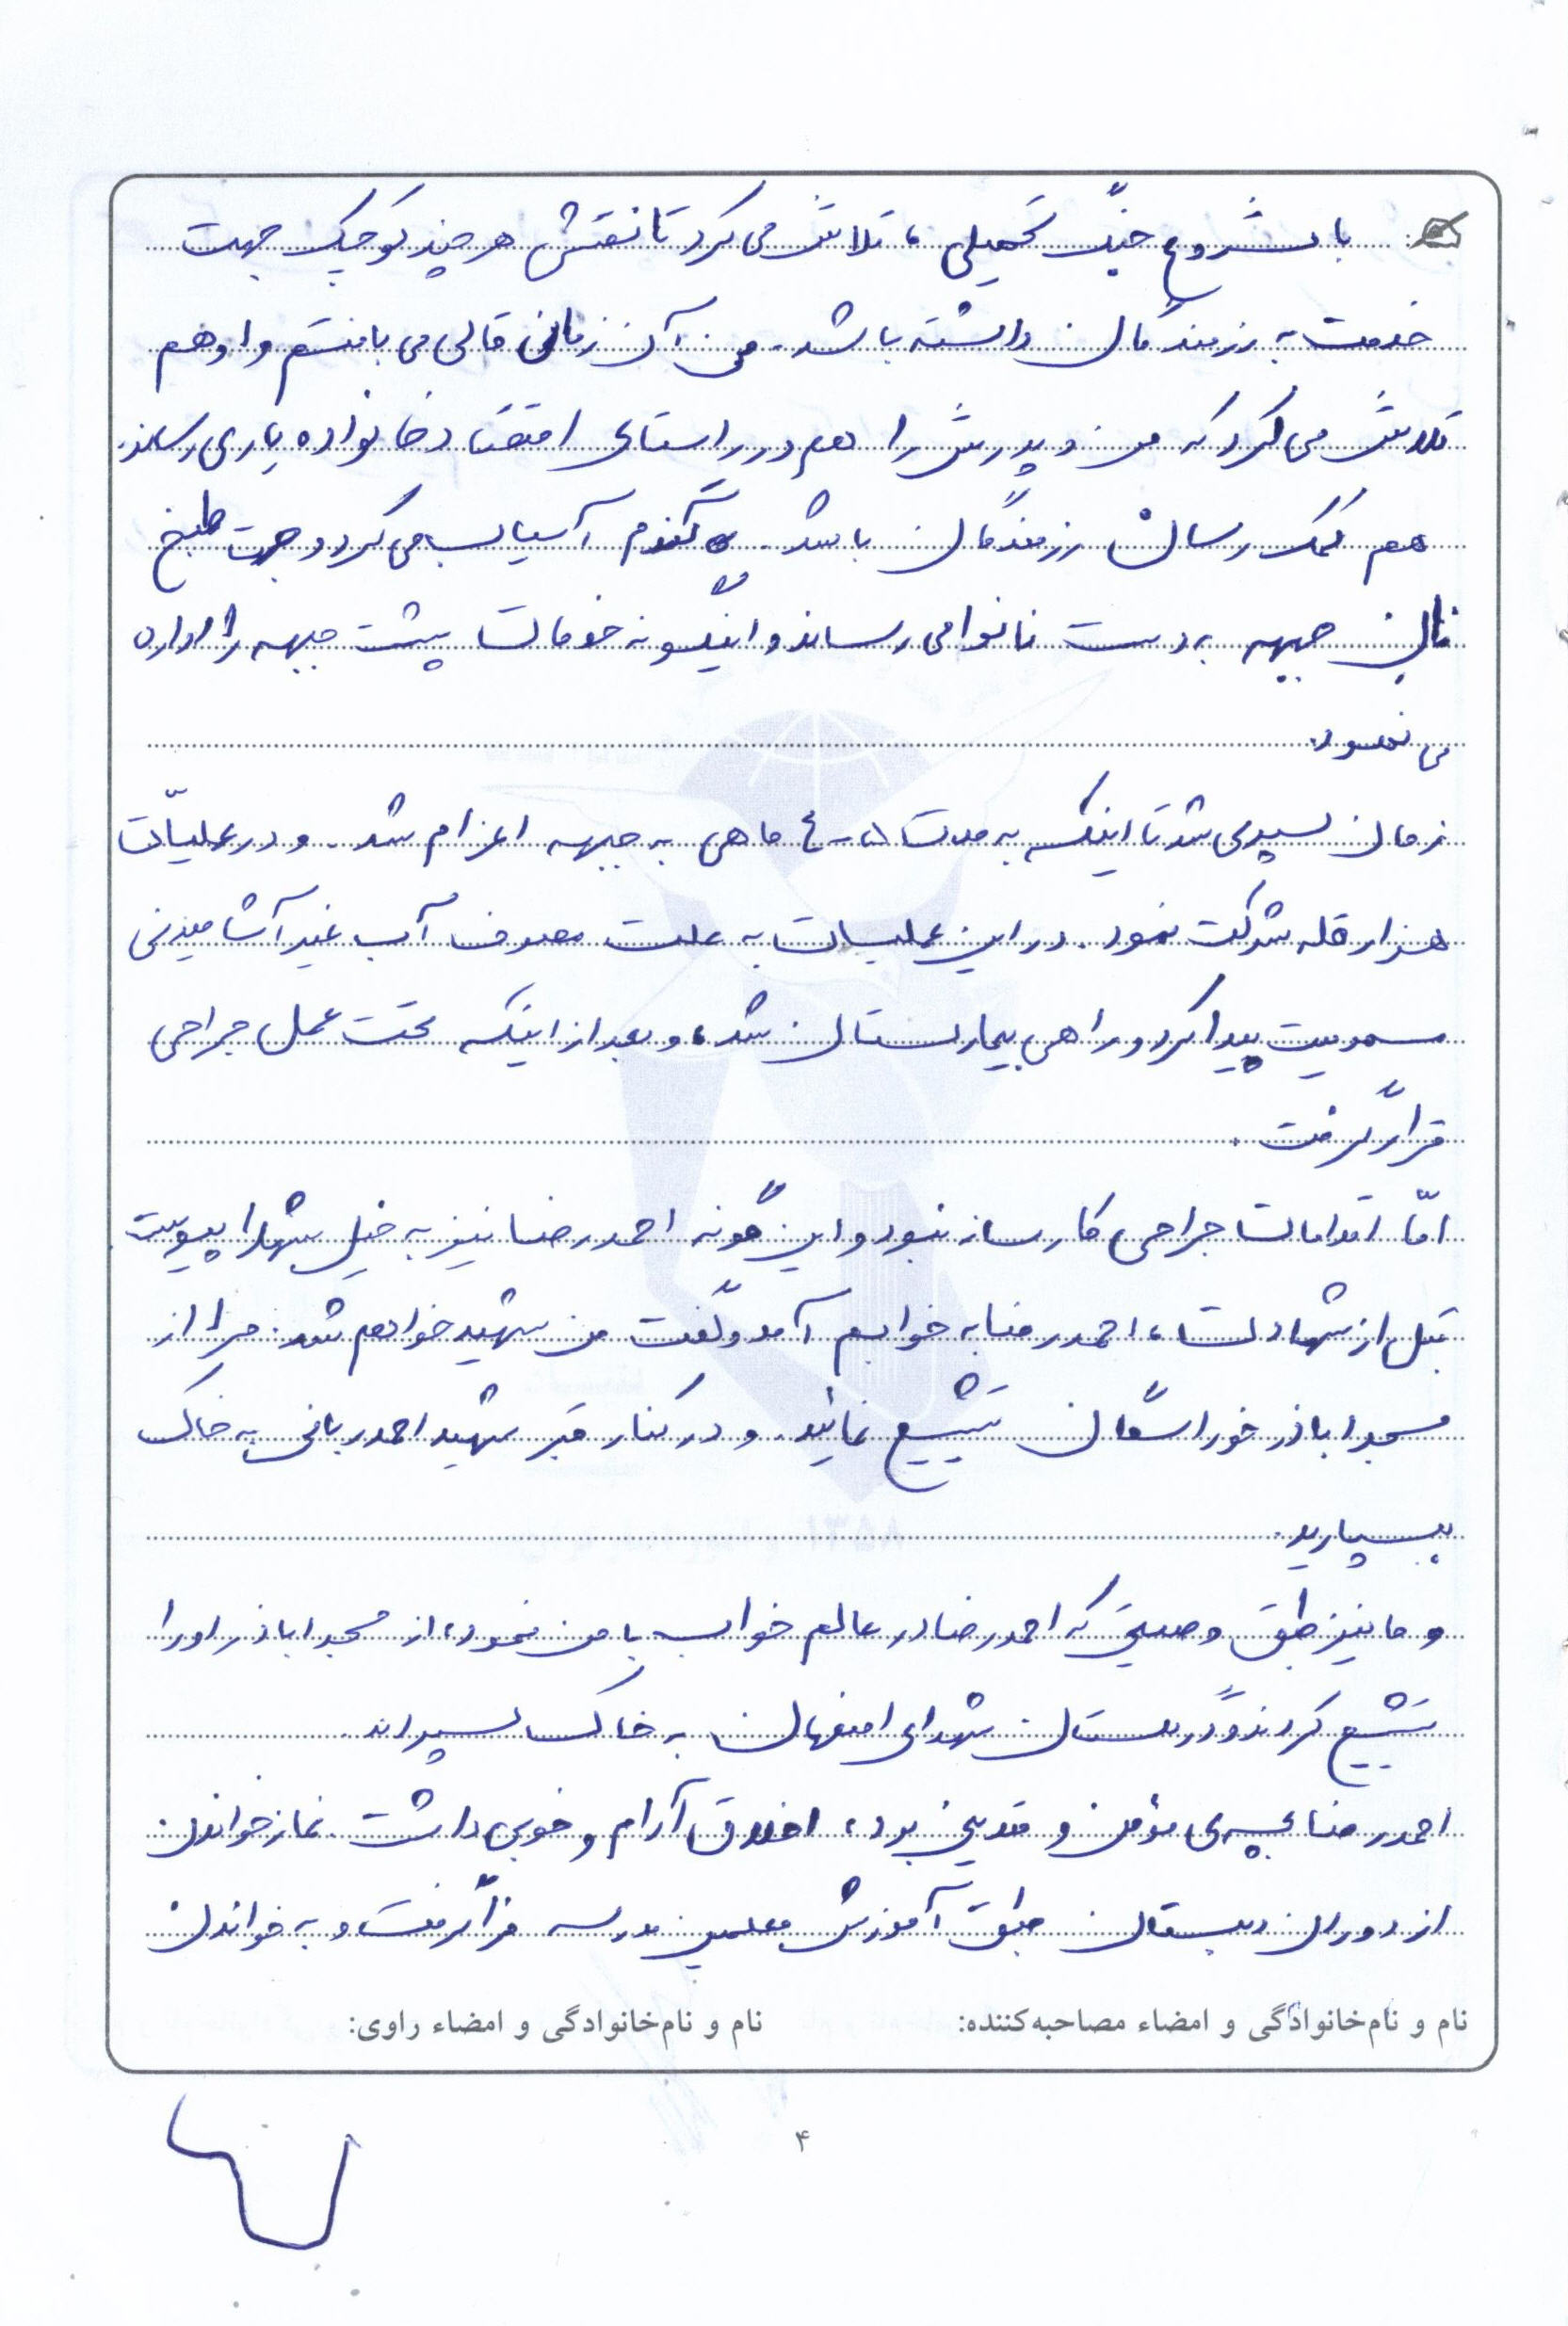 با شروع جنگ تحمیلی، تلاش می کرد تا نقشی هر چند کوچک جهت
خدمت به رزمندگان داشته باشد. من آن زمانی قالی می بافتم و او هم
تلاش می کرد که من و پدرش را هم در راستای اقتصاد خانواده یاری رساند.
هم کمک رسان رزمندگان باشد. گندم آسیاب می کرد و جهت طبخ
نان جبهه به دست نانوا می رساند و اینگونه خدمات پشت جبهه را اداره
می نمود.
زمان سپری شد تا اینکه به مدت ۵-۴ ماهی به جبهه اعزام شد. و در عملیات
هزار قله شرکت نمود. در این عملیات به علت مصرف آب غیر آشامیدنی
مسمومیت پیدا کرد و راهی بیمارستان شد، و بعد از اینکه تحت عمل جراحی
قرار گرفت.
امّا اقدامات جراحی کارساز نبود و این گونه احمدرضا نیز به خیل شهدا پیوست.
قبل از شهادت، احمدرضا به خوابم آمد و گفت من شهید خواهم شد. مرا از
مسجد اباذر خوراسگان تشییع نمائید. و در کنار قبر شهید احمد ربانی به خاک
بسپارید.
و ما نیز طبق وصیتی که احمدرضا در عالم خواب با من نمود، از مسجد اباذر او را
تشییع کردند و در گلستان شهدای اصفهان به خاک سپردند.
احمدرضا پسری مؤمن و متدینی بود، اخلاق آرام و خوبی داشت. نماز خواندن
از دوران دبستان طبق آموزش معلمین مدرسه فرا گرفت و به خواندن
نام و نام‌خانوادگی و امضاء مصاحبه‌کننده: نام و نام‌خانوادگی و امضاء راوی:
۴